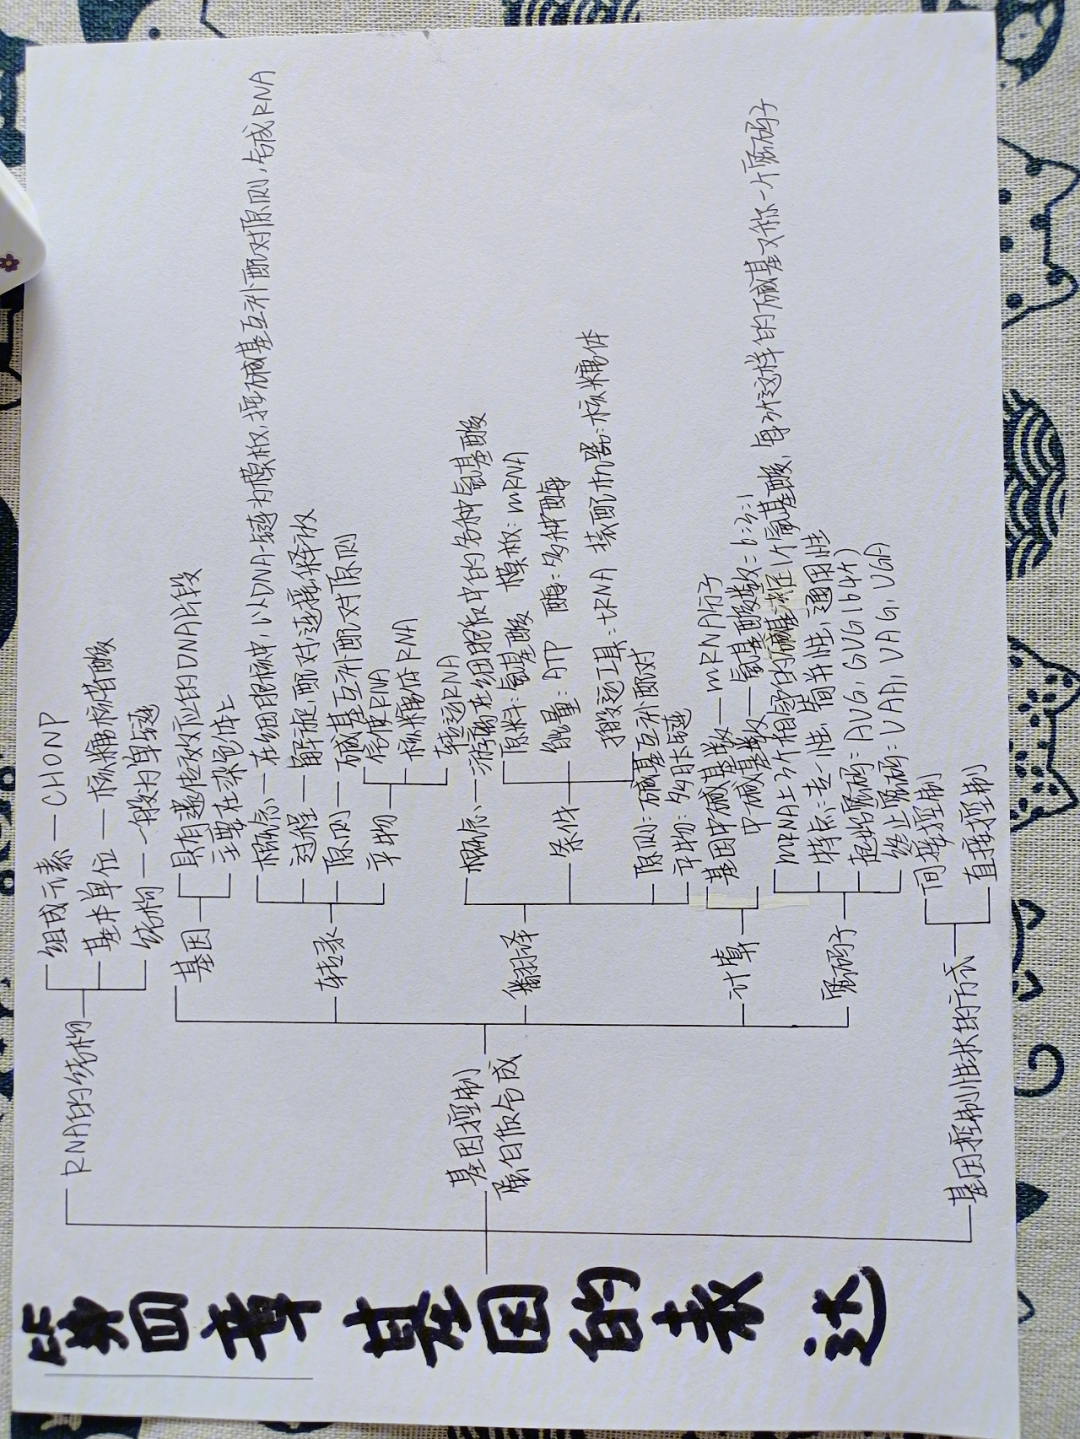 第四章 基因的表达
RNA的结构
组成元素—CHONP
基本单位—核糖核苷酸
结构—一般为单链
基因控制
蛋白质合成
基因
具有遗传效应的DNA片段
主要在染色体上
转录
概念—在细胞核中,以DNA一链为模板,按碱基互补配对原则,合成RNA
过程—解旋,配对,连接,释放
原则—碱基互补配对原则
产物
信使RNA
核糖体RNA
转运RNA
翻译
概念—游离在细胞质中的各种氨基酸
条件
原料:氨基酸 模板:mRNA
能量:ATP 酶:多种酶
搬运工具:tRNA 装配机器:核糖体
原则:碱基互补配对
产物:多肽链
计算
基因中碱基数—mRNA分子
中碱基数—氨基酸数=6:3:1
密码子
mRNA上3个相邻的碱基决定1个氨基酸,每个这样的碱基又称一个密码子
特点:专一性,简并性,通用性
起始密码:AUG,GUG(644)
终止密码:UAA,UAG,UGA
基因控制性状的方式
间接控制
直接控制